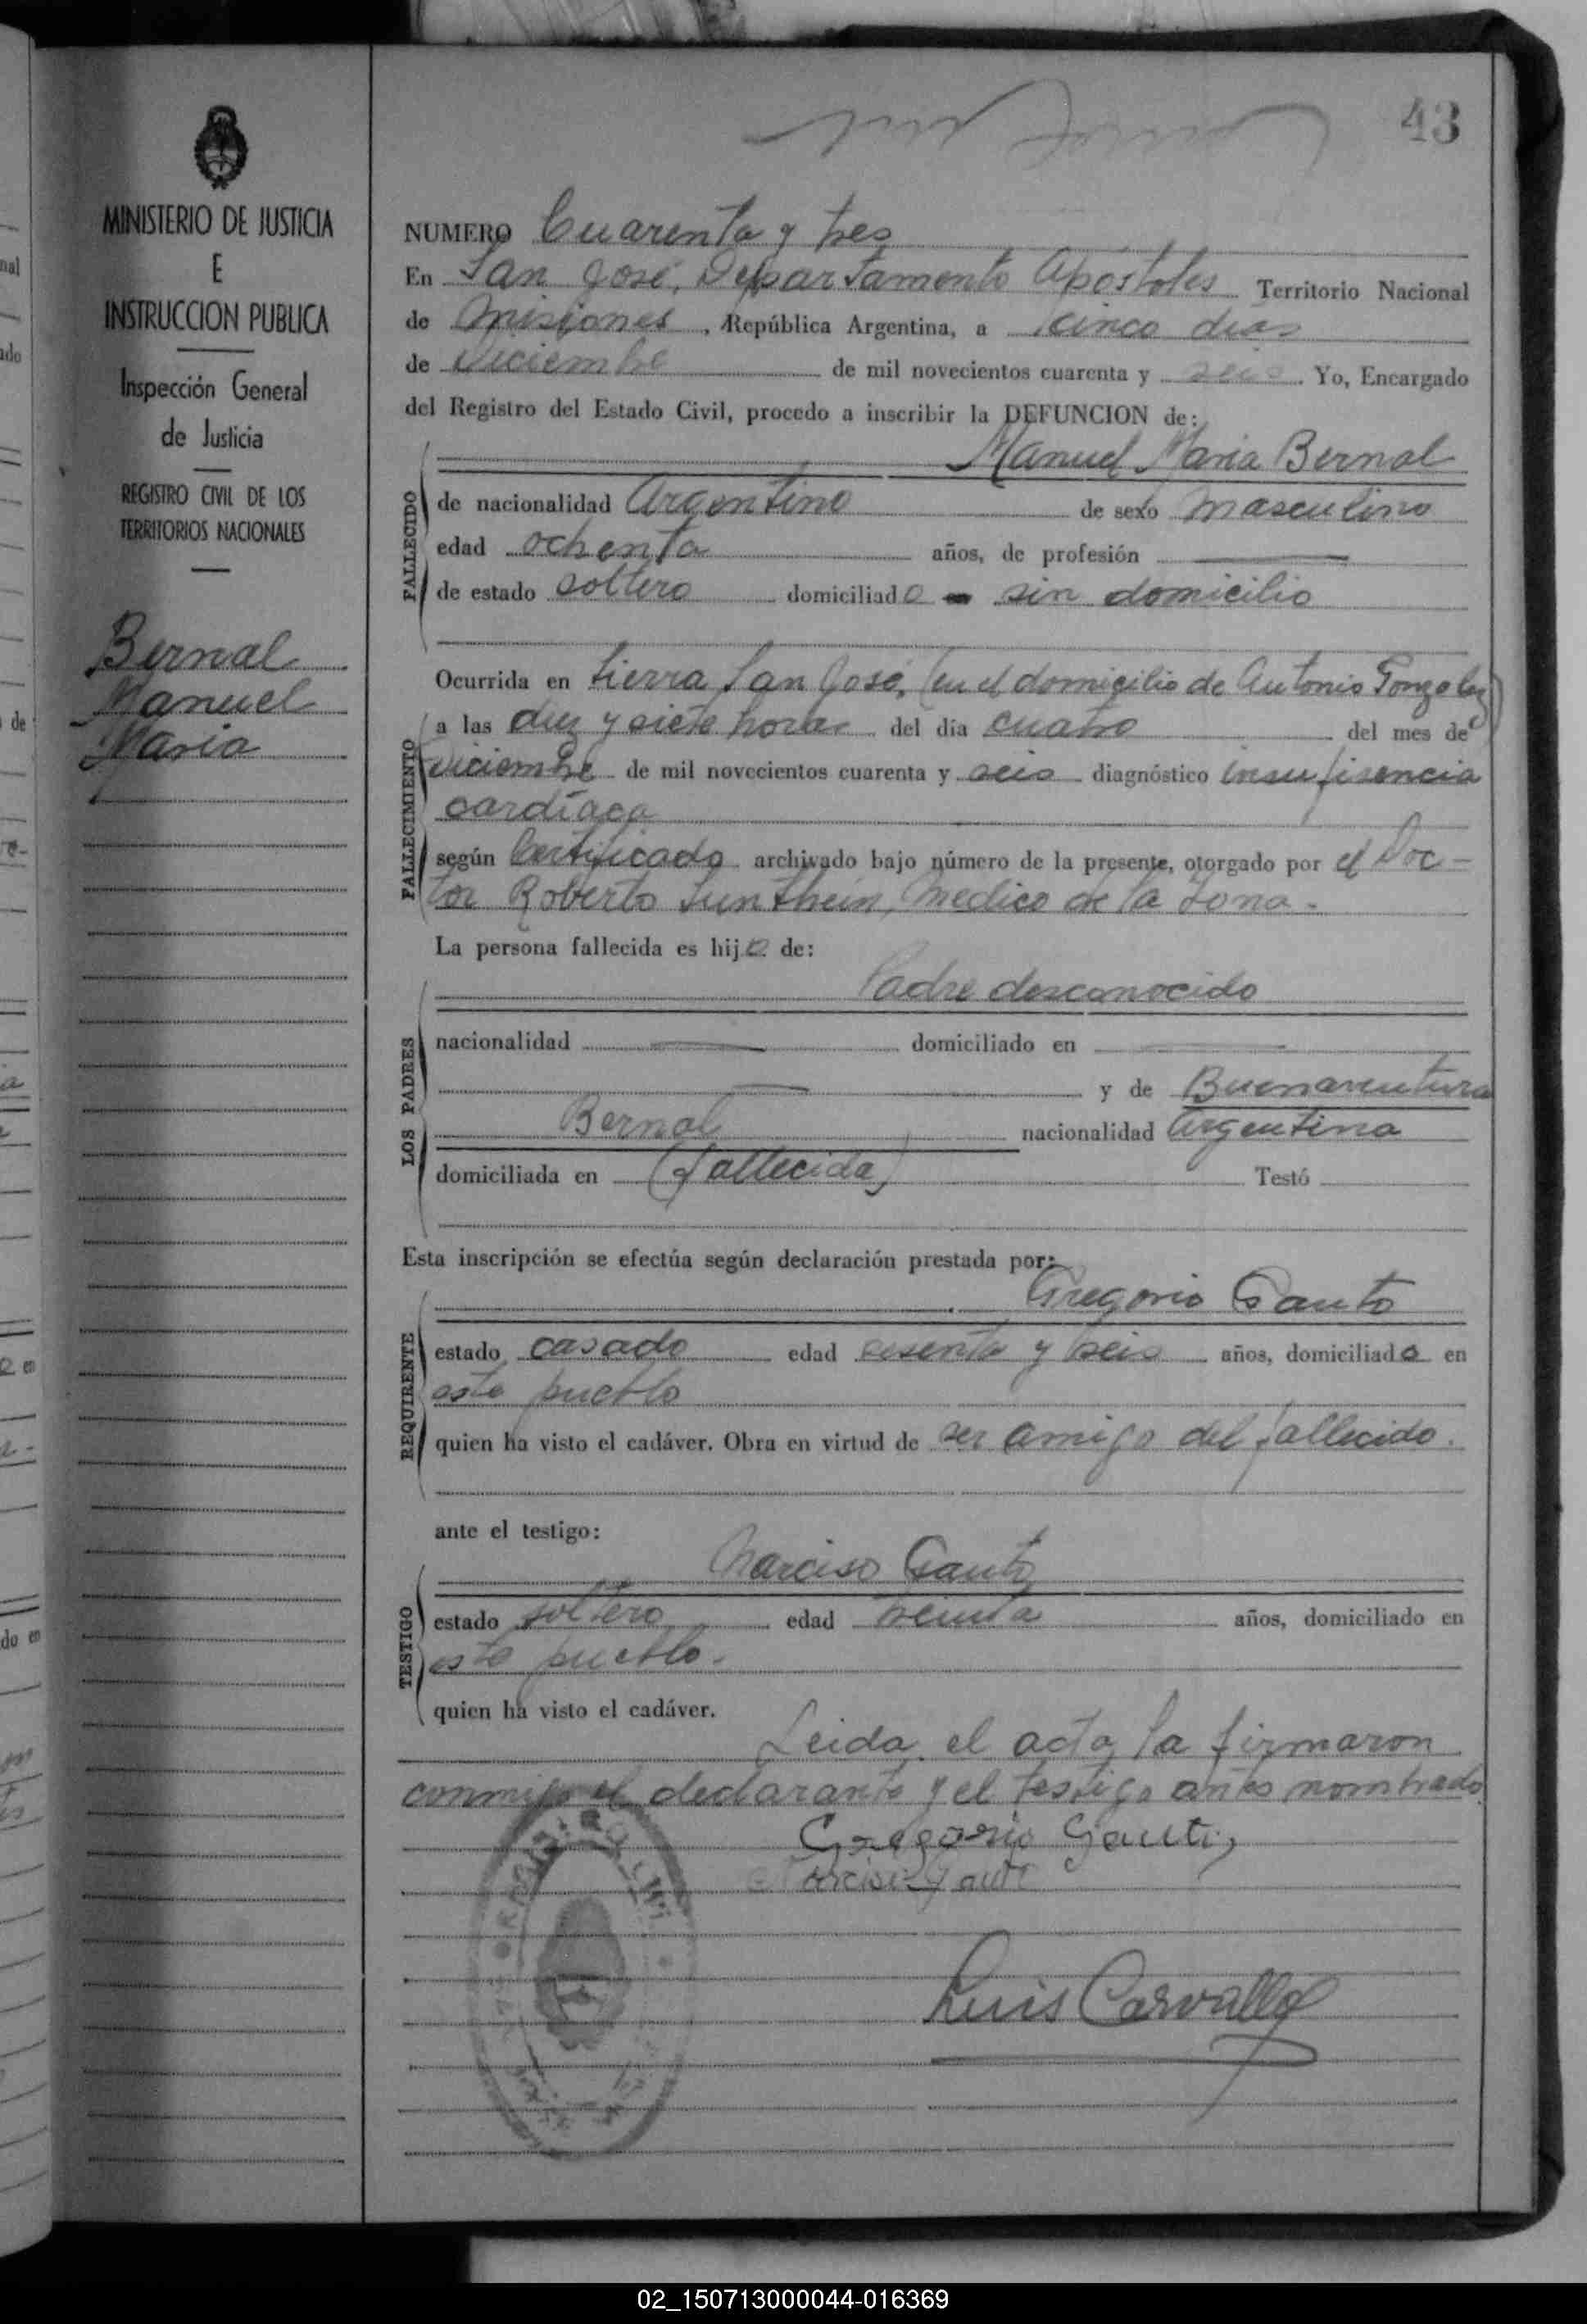 43
MINISTERIO DE JUSTICIA
E
INSTRUCCION PUBLICA
Inspección General
de Justicia
REGISTRO CIVIL DE LOS
TERRITORIOS NACIONALES
Bernal
Manuel
Maria
NUMERO Cuarenta y tres
En San José, Departamento Apóstoles Territorio Nacional
de Misiones, República Argentina, a cinco dias
de Diciembre de mil novecientos cuarenta y seis. Yo, Encargado
del Registro del Estado Civil, procedo a inscribir la DEFUNCION de:
Manuel Maria Bernal
FALLECIDO
de nacionalidad Argentino de sexo masculino
edad ochenta años, de profesión —
de estado soltero domiciliado - sin domicilio
Ocurrida en tierra San José, (en el domicilio de Antonio Gonzalez)
FALLECIMIENTO
a las diez y siete horas del día cuatro del mes de
Diciembre de mil novecientos cuarenta y seis diagnóstico insufisencia
cardíaca
según Certificado archivado bajo número de la presente, otorgado por el Doc-
tor Roberto medico de la zona.-
La persona fallecida es hijo de:
LOS PADRES
Padre desconocido
nacionalidad — domiciliado en —
— y de Buenaventura
Bernal nacionalidad Argentina
domiciliada en (fallecida) Testó
Esta inscripción se efectúa según declaración prestada por:
REQUIRENTE
Gregorio Gauto
estado casado edad sesenta y seis años, domiciliado en
este pueblo
quien ha visto el cadáver. Obra en virtud de ser amigo del fallecido.
ante el testigo:
TESTIGO
Narciso Gauto
estado soltero edad treinta años, domiciliado en
este pueblo.
quien ha visto el cadáver.
Leida el acta, la firmaron
conmigo el declarante y el testigo antes nombrado
Gregorio Gauto
Narciso Gauto
Luis Carvallo
02_150713000044-016369